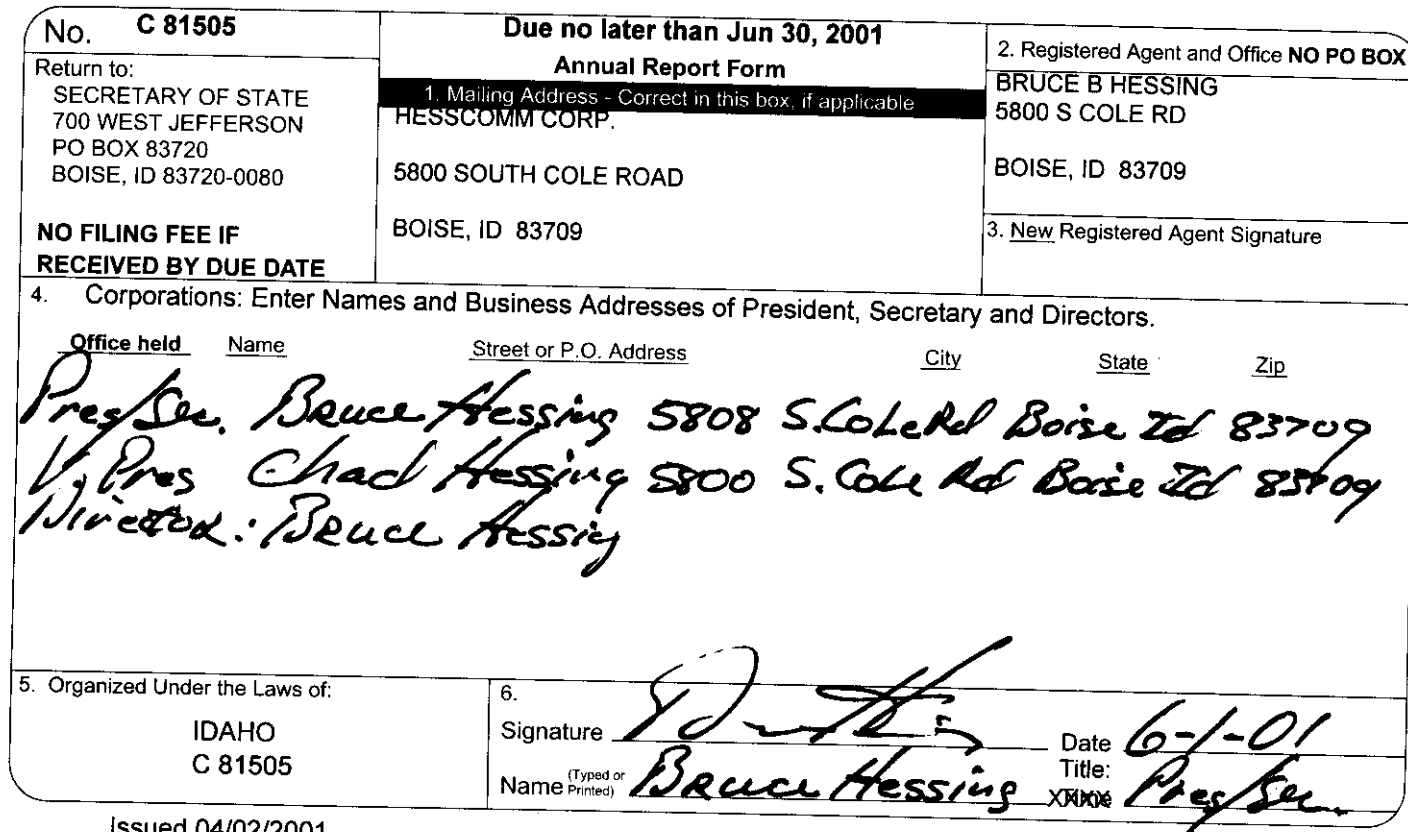 No. C 81505
Return to:
SECRETARY OF STATE
700 WEST JEFFERSON
PO BOX 83720
BOISE, ID 83720-0080
NO FILING FEE IF
RECEIVED BY DUE DATE
Due no later than Jun 30, 2001
Annual Report Form
1. Mailing Address - Correct in this box, if applicable
HESSCOMM CORP.
5800 SOUTH COLE ROAD
BOISE, ID 83709
2. Registered Agent and Office NO PO BOX
BRUCE B HESSING
5800 S COLE RD
BOISE, ID 83709
3. New Registered Agent Signature
4. Corporations: Enter Names and Business Addresses of President, Secretary and Directors.
Office held Name Street or P.O. Address City State Zip
Pres/Sec. Bruce Hessing 5808 S. Cole Rd Boise Id 83709
V. Pres Chad Hessing 5800 S. Cole Rd Boise Id 83709
Director: Bruce Hessing
5. Organized Under the Laws of:
IDAHO
C 81505
6.
Signature Date 6-1-01
Name (Typed or Printed) Bruce Hessing Title: Pres/Sec
Issued 04/02/2001